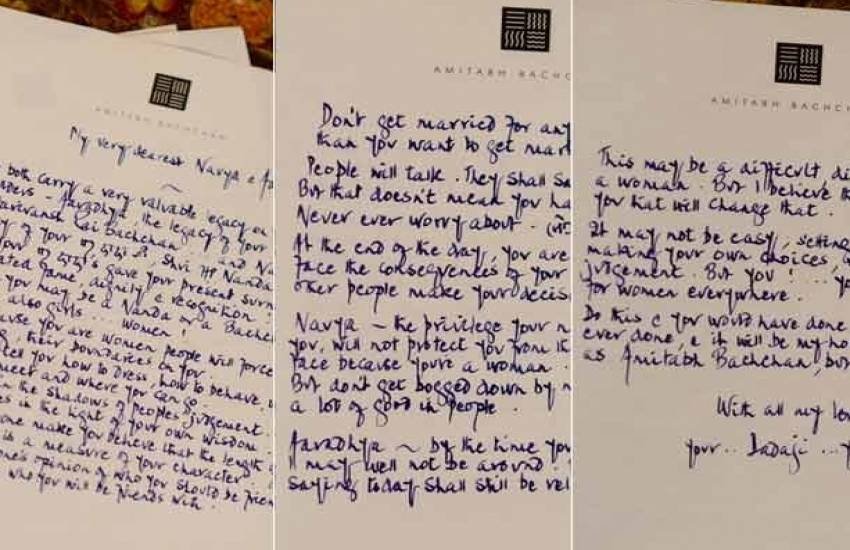 AMITABH BACHCHAN
My very dearest Navya &
both carry a very valuable legacy on
Aaradhya, the legacy of your
Harivansh Rai Bachchan ... and Na
of your Shri HP Nanda
your gave your present surn
ated fame, dignity & recognition!
you may be a Nanda or a Bachch
also girls ... women!
ause you are women people will force
, their boundaries on you.
tell you how to dress, how to behave,
meet and where you can go.
in the shadows of people's judgement.
es in the light of your own wisdom.
one make you believe that the length
is a measure of your character.
one's opinion of who you should be frien
who you will be friends with.
AMITABH BACHC
Don't get married for any
than you want to get marr
People will talk. They shall sa
But that doesn't mean you ha
Never ever worry about -
At the end of the day, you are
face the consequences of your
other people make your decis
Navya ~ the privilege your n
you, will not protect you from th
face because you're a woman.
But don't get bogged down by
a lot of good in people.
Aaradhya ~ by the time you
I may well not be around!
saying today shall still be rel
AMITABH BACHCH
This may be a difficult di
a woman. But I believe th
you that will change that.
It may not be easy, setting
making your own choices,
judgement. But you! ... yo
for women everywhere.
Do this & you would have done
ever done, & it will be my ho
as Amitabh Bachchan, but
With all my lo
your .. Dadaji ...